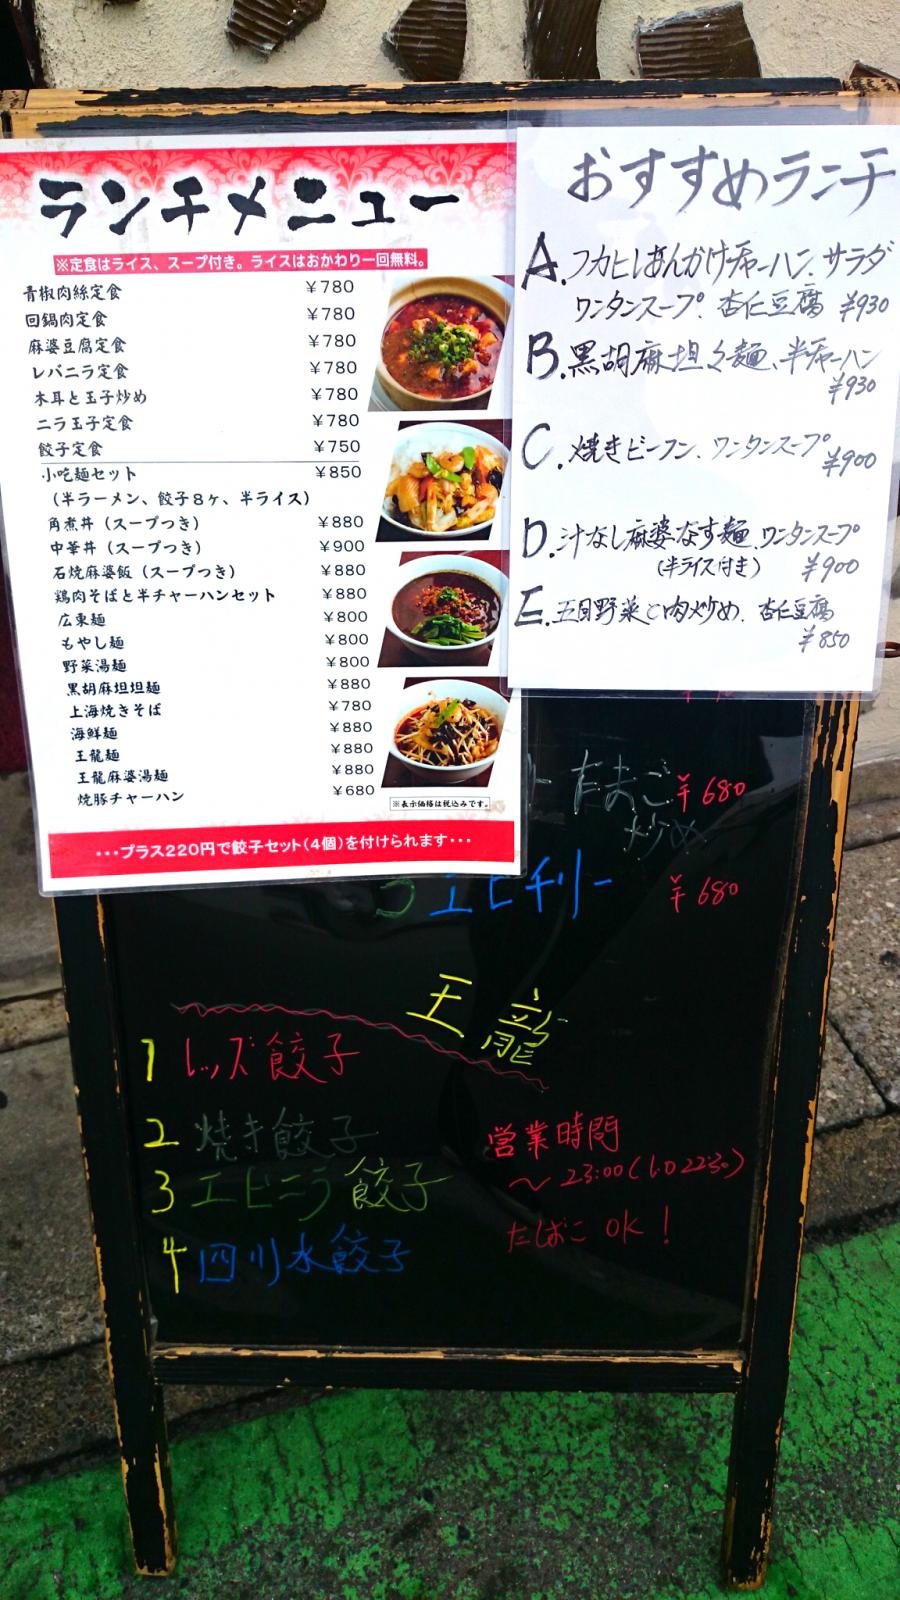 ランチメニュー
※定食はライス、スープ付き。ライスはおかわり一回無料。
青椒肉絲定食 ¥780
回鍋肉定食 ¥780
麻婆豆腐定食 ¥780
レバニラ定食 ¥780
木耳と玉子炒め ¥780
ニラ玉子定食 ¥780
餃子定食 ¥750
小吃麺セット ¥850
(半ラーメン、餃子8ヶ、半ライス)
角煮丼(スープつき) ¥880
中華丼(スープつき) ¥900
石焼麻婆飯(スープつき) ¥880
鶏肉そばと半チャーハンセット ¥880
広東麺 ¥800
もやし麺 ¥800
野菜湯麺 ¥800
黒胡麻坦坦麺 ¥880
上海焼きそば ¥780
海鮮麺 ¥880
王龍麺 ¥880
王龍麻婆湯麺 ¥880
焼豚チャーハン ¥680
※表示価格は税込みです。
･･･プラス220円で餃子セット(4個)を付けられます･･･
おすすめランチ
A.フカヒレあんかけチャーハン、サラダ
ワンタンスープ、杏仁豆腐 ¥930
B.黒胡麻坦々麺、半チャーハン
¥930
C.焼きビーフン、ワンタンスープ
¥900
D.汁なし麻婆なす麺、ワンタンスープ
(半ライス付き) ¥900
E.五目野菜と肉炒め、杏仁豆腐
¥850
たまご ¥680
炒め
エビチリー ¥680
王龍
1 レッズ餃子
2 焼き餃子
3 エビニラ餃子
4 四川水餃子
営業時間
～23:00(L.O 22:30)
たばこ OK!